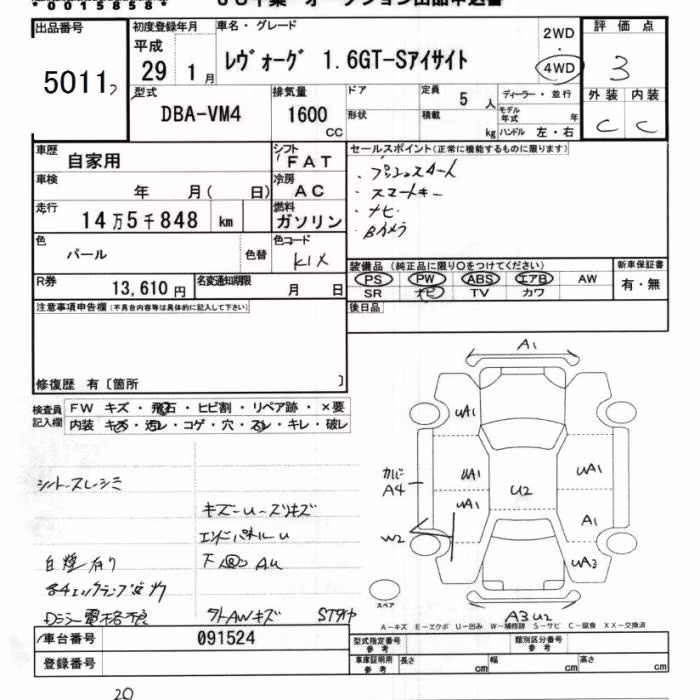 00158584
出品番号
5011
初度登録年月
平成
29 1月
車名・グレード
レヴォーグ 1.6GT-Sアイサイト
2WD
・
4WD
評価点
3
外装 内装
C C
型式
DBA-VM4
排気量
1600
CC
ドア
形状
定員
5 人
積載
kg
ディーラー・並行
モデル年式 年
ハンドル 左・右
車歴
自家用
シフト
FAT
車検
年 月( 日)
冷房
AC
走行
14万5千848 km
燃料
ガソリン
色
パール
色替
色コード
K1X
R券
13,610円
名変通知期限
月 日
セールスポイント(正常に機能するものに限ります)
・プッシュスタート
・スマートキー
・ナビ
・Bカメラ
装備品(純正品に限り○をつけてください)
PS PW ABS エアB AW
SR ナビ TV カワ
新車保証書
有・無
後日品
注意事項申告欄(不具合内容等は具体的に記入して下さい)
修復歴 有〔箇所 〕
検査員記入欄
FW キズ・飛石・ヒビ割・リペア跡・×要
内装 キズ・汚レ・コゲ・穴・スレ・キレ・破レ
シートスレシミ
キズ-U-スリキズ
エンドパネルU
白煙有り
各チェックランプ点灯
外AWキズ
A1
UA1
UA1
UA1
カバー
A4
W2
U2
UA1
A1
UA3
A3 U2
スペア
A-キズ E-エクボ U-凹み W-補修跡 S-サビ C-腐食 XX-交換済
車台番号
091524
登録番号
型式指定番号
参考
類別区分番号
参考
車庫証明用
参考
長さ cm
幅 cm
高さ cm
20